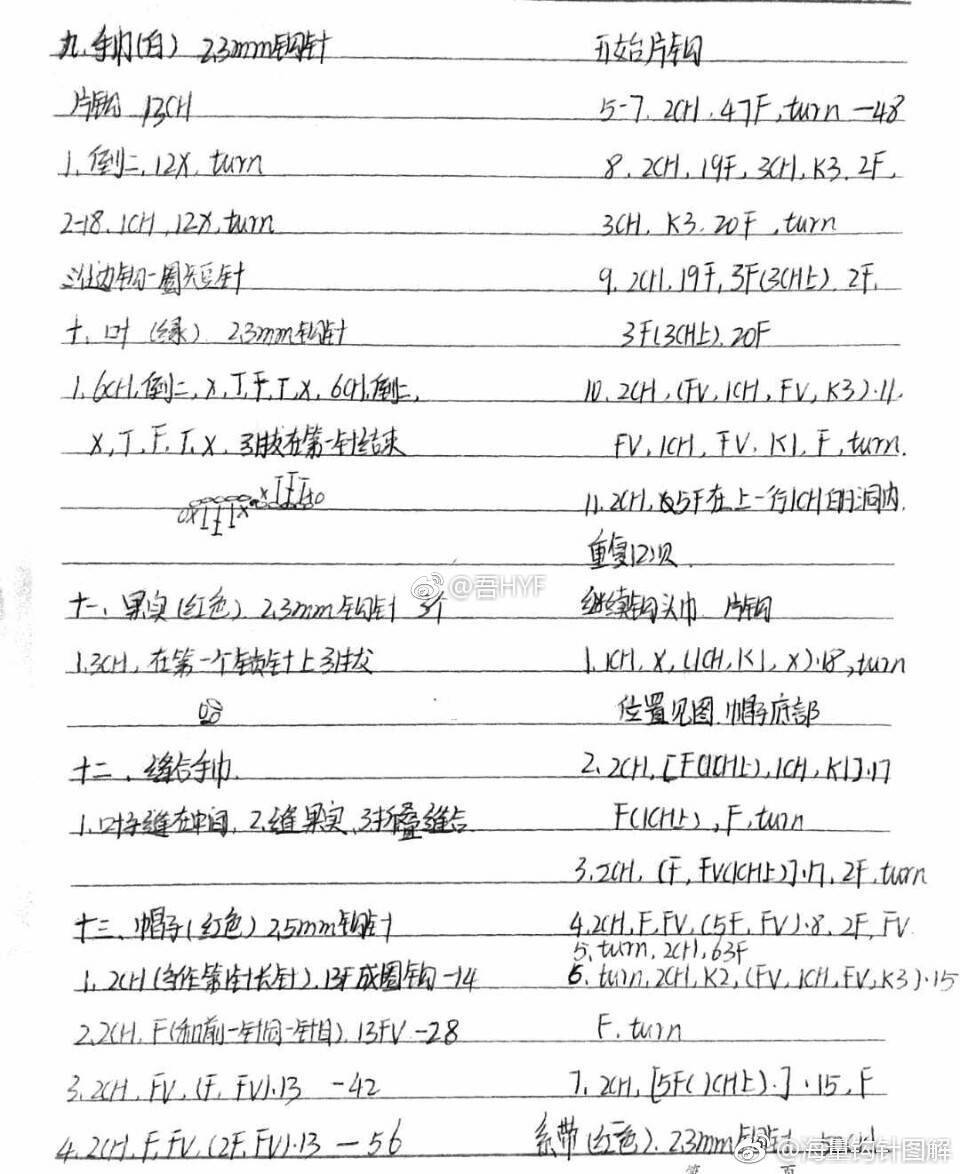 九、手巾(白) 2.3mm钩针
片钩 13CH
1. 倒二, 12X, turn
2-18. 1CH, 12X, turn
沿边钩一圈短针
十、叶(绿). 2.3mm钩针
1. 6CH, 倒二, X, T, F, T, X, 6CH, 倒二,
X, T, F, T, X, 引拔在第一针结束
十一、果实(红色). 2.3mm钩针 3个
1. 3CH, 在第一个锁针上引拔
十二、缝合手巾.
1. 叶子缝在中间, 2. 缝果实, 3. 折叠缝合
十三、帽子(红色) 2.5mm钩针
1. 2CH(当作第1针长针). 13F成圈钩 -14
2. 2CH, F(和前一针同一针目). 13FV -28
3. 2CH, FV, (F, FV)·13 -42
4. 2CH, F, FV, (2F, FV)·13 -56
开始片钩
5-7. 2CH, 47F, turn -48
8. 2CH, 19F, 3CH, K3, 2F,
3CH, K3, 20F, turn
9. 2CH, 19F, 3F(3CH上), 2F,
3F(3CH上), 20F
10. 2CH, (FV, 1CH, FV, K3)·11,
FV, 1CH, FV, K1, F, turn.
11. 2CH, 5F在上一行1CH的洞内,
重复12次.
继续钩头巾. 片钩
1. 1CH, X, (1CH, K1, X)·18, turn
位置见图. 帽子底部
2. 2CH, [F(1CH上), 1CH, K1]·17
F(1CH上), F, turn
3. 2CH, [F, FV(1CH上)]·17, 2F, turn
4. 2CH, F, FV, (5F, FV)·8, 2F, FV
5. turn, 2CH, 63F
6. turn, 2CH, K2, (FV, 1CH, FV, K3)·15
F. turn
7. 2CH, [5F(1CH上)·]·15, F
系带(红色). 2.3mm钩针
第 页
@吾HYF
@海量钩针图解